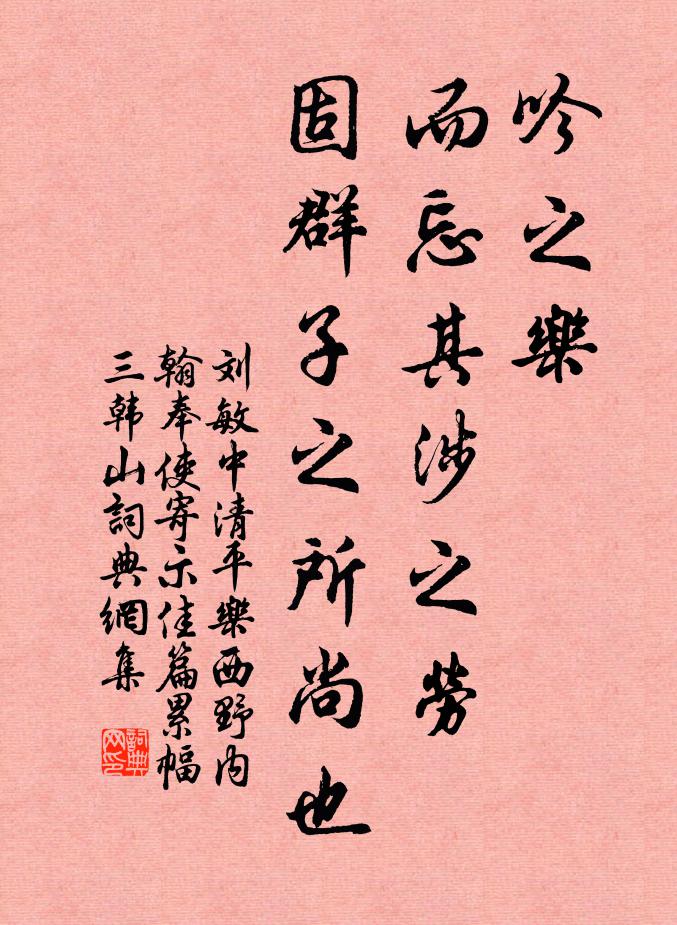 吟之樂
而忘其涉之勞
固群子之所尚也
刘敏中清平樂西野内
翰奉使寄示佳篇累幅
三韩山詞典網集
詞典网印